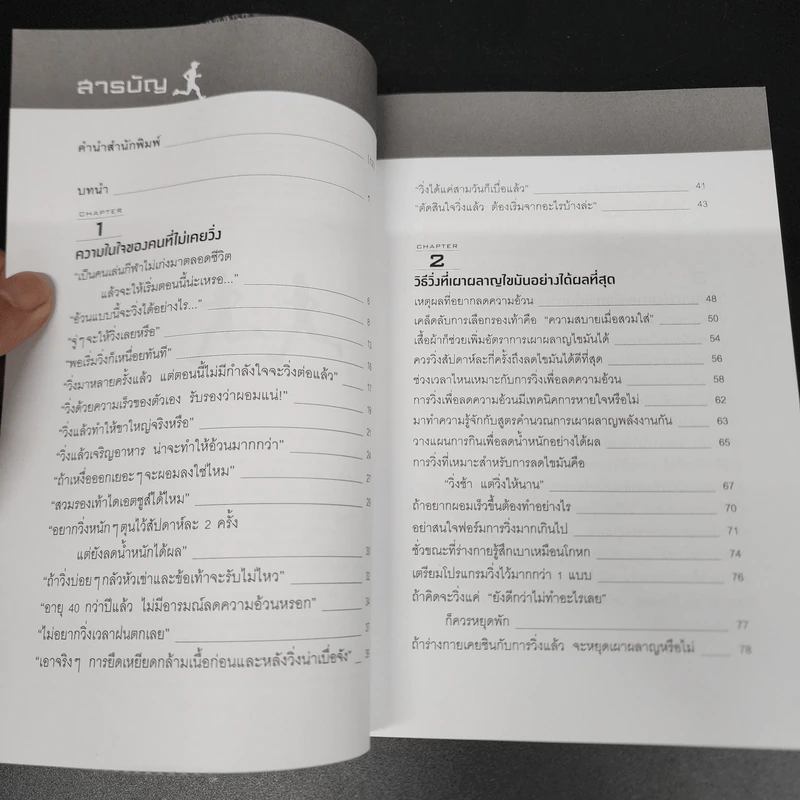 สารบัญ
คำนำสำนักพิมพ์
บทนำ 1
CHAPTER
1
ความในใจของคนที่ไม่เคยวิ่ง
"เป็นคนเล่นกีฬาไม่เก่งมาตลอดชีวิต
แล้วจะให้เริ่มตอนนี้น่ะเหรอ..." 6
"อ้วนแบบนี้จะวิ่งได้อย่างไร..." 8
"จู่ๆจะให้วิ่งเลยหรือ"
"พอเริ่มวิ่งก็เหนื่อยทันที"
"วิ่งมาหลายครั้งแล้ว แต่ตอนนี้ไม่มีกำลังใจจะวิ่งต่อแล้ว"
"วิ่งด้วยความเร็วของตัวเอง รับรองว่าผอมแน่!"
"วิ่งแล้วทำให้ขาใหญ่จริงหรือ"
"วิ่งแล้วเจริญอาหาร น่าจะทำให้อ้วนมากกว่า"
"ถ้าเหงื่อออกเยอะๆจะผอมลงใช่ไหม" 27
"สวมรองเท้าไดเอตชูส์ได้ไหม"
"อยากวิ่งหนักๆตุนไว้สัปดาห์ละ 2 ครั้ง
แต่ยังลดน้ำหนักได้ผล" 30
"ถ้าวิ่งบ่อยๆกลัวหัวเข่าและข้อเท้าจะรับไม่ไหว" 32
"อายุ 40 กว่าปีแล้ว ไม่มีอารมณ์ลดความอ้วนหรอก" 34
"ไม่อยากวิ่งเวลาฝนตกเลย" 37
"เอาจริงๆ การยืดเหยียดกล้ามเนื้อก่อนและหลังวิ่งน่าเบื่อจัง"
"วิ่งได้แค่สามวันก็เบื่อแล้ว" 41
"ตัดสินใจวิ่งแล้ว ต้องเริ่มจากอะไรบ้างล่ะ" 43
CHAPTER
2
วิธีวิ่งที่เผาผลาญไขมันอย่างได้ผลที่สุด
เหตุผลที่อยากลดความอ้วน 48
เคล็ดลับการเลือกรองเท้าคือ "ความสบายเมื่อสวมใส่" 50
เสื้อผ้าก็ช่วยเพิ่มอัตราการเผาผลาญไขมันได้ 54
ควรวิ่งสัปดาห์ละกี่ครั้งถึงลดไขมันได้ดีที่สุด 56
ช่วงเวลาไหนเหมาะกับการวิ่งเพื่อลดความอ้วน 58
การวิ่งเพื่อลดความอ้วนมีเทคนิคการหายใจหรือไม่ 62
มาทำความรู้จักกับสูตรคำนวณการเผาผลาญพลังงานกัน 63
วางแผนการกินเพื่อลดน้ำหนักอย่างได้ผล 65
การวิ่งที่เหมาะสำหรับการลดไขมันคือ
"วิ่งช้า แต่วิ่งให้นาน" 67
ถ้าอยากผอมเร็วขึ้นต้องทำอย่างไร 70
อย่าสนใจฟอร์มการวิ่งมากเกินไป 71
ชั่วขณะที่ร่างกายรู้สึกเบาเหมือนโกหก 74
เตรียมโปรแกรมวิ่งไว้มากกว่า 1 แบบ 76
ถ้าคิดจะวิ่งแค่ "ยังดีกว่าไม่ทำอะไรเลย"
ก็ควรหยุดพัก 77
ถ้าร่างกายเคยชินกับการวิ่งแล้ว จะหยุดเผาผลาญหรือไม่ 78